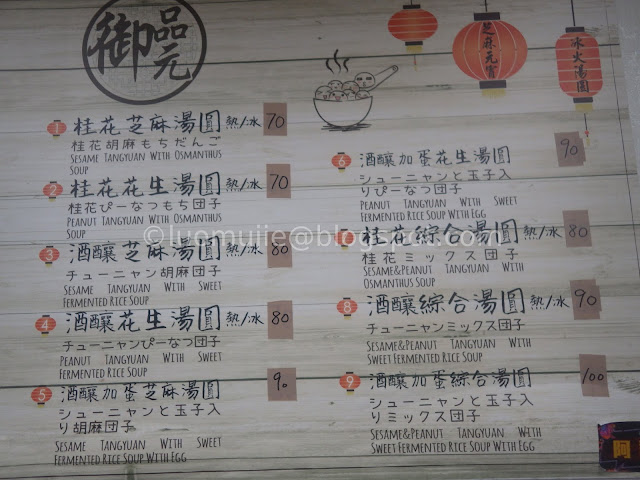 御品元
芝麻元宵
冰火湯圓
1 桂花芝麻湯圓 熱/冰 70
桂花胡麻もちだんご
Sesame Tangyuan With Osmanthus
Soup
2 桂花花生湯圓 熱/冰 70
桂花ぴーなつもち団子
Peanut Tangyuan With Osmanthus
Soup
3 酒釀芝麻湯圓 熱/冰 80
チューニャン胡麻団子
Sesame Tangyuan With Sweet
Fermented Rice Soup
4 酒釀花生湯圓 熱/冰 80
チューニャンぴーなつ団子
Peanut Tangyuan With Sweet
Fermented Rice Soup
5 酒釀加蛋芝麻湯圓 90
シューニャンと玉子入
り胡麻団子
Sesame Tangyuan With Sweet
Fermented Rice Soup With Egg
6 酒釀加蛋花生湯圓 90
シューニャンと玉子入
りぴーなつ団子
Peanut Tangyuan With Sweet
Fermented Rice Soup With Egg
桂花綜合湯圓 熱/冰 80
桂花ミックス団子
Sesame&Peanut Tangyuan With
Osmanthus Soup
8 酒釀綜合湯圓 熱/冰 90
チューニャンミックス団子
Sesame&Peanut Tangyuan With
Sweet Fermented Rice Soup
9 酒釀加蛋綜合湯圓 100
シューニャンと玉子入
りミックス団子
Sesame&Peanut Tangyuan With
Sweet Fermented Rice Soup With Egg
阿